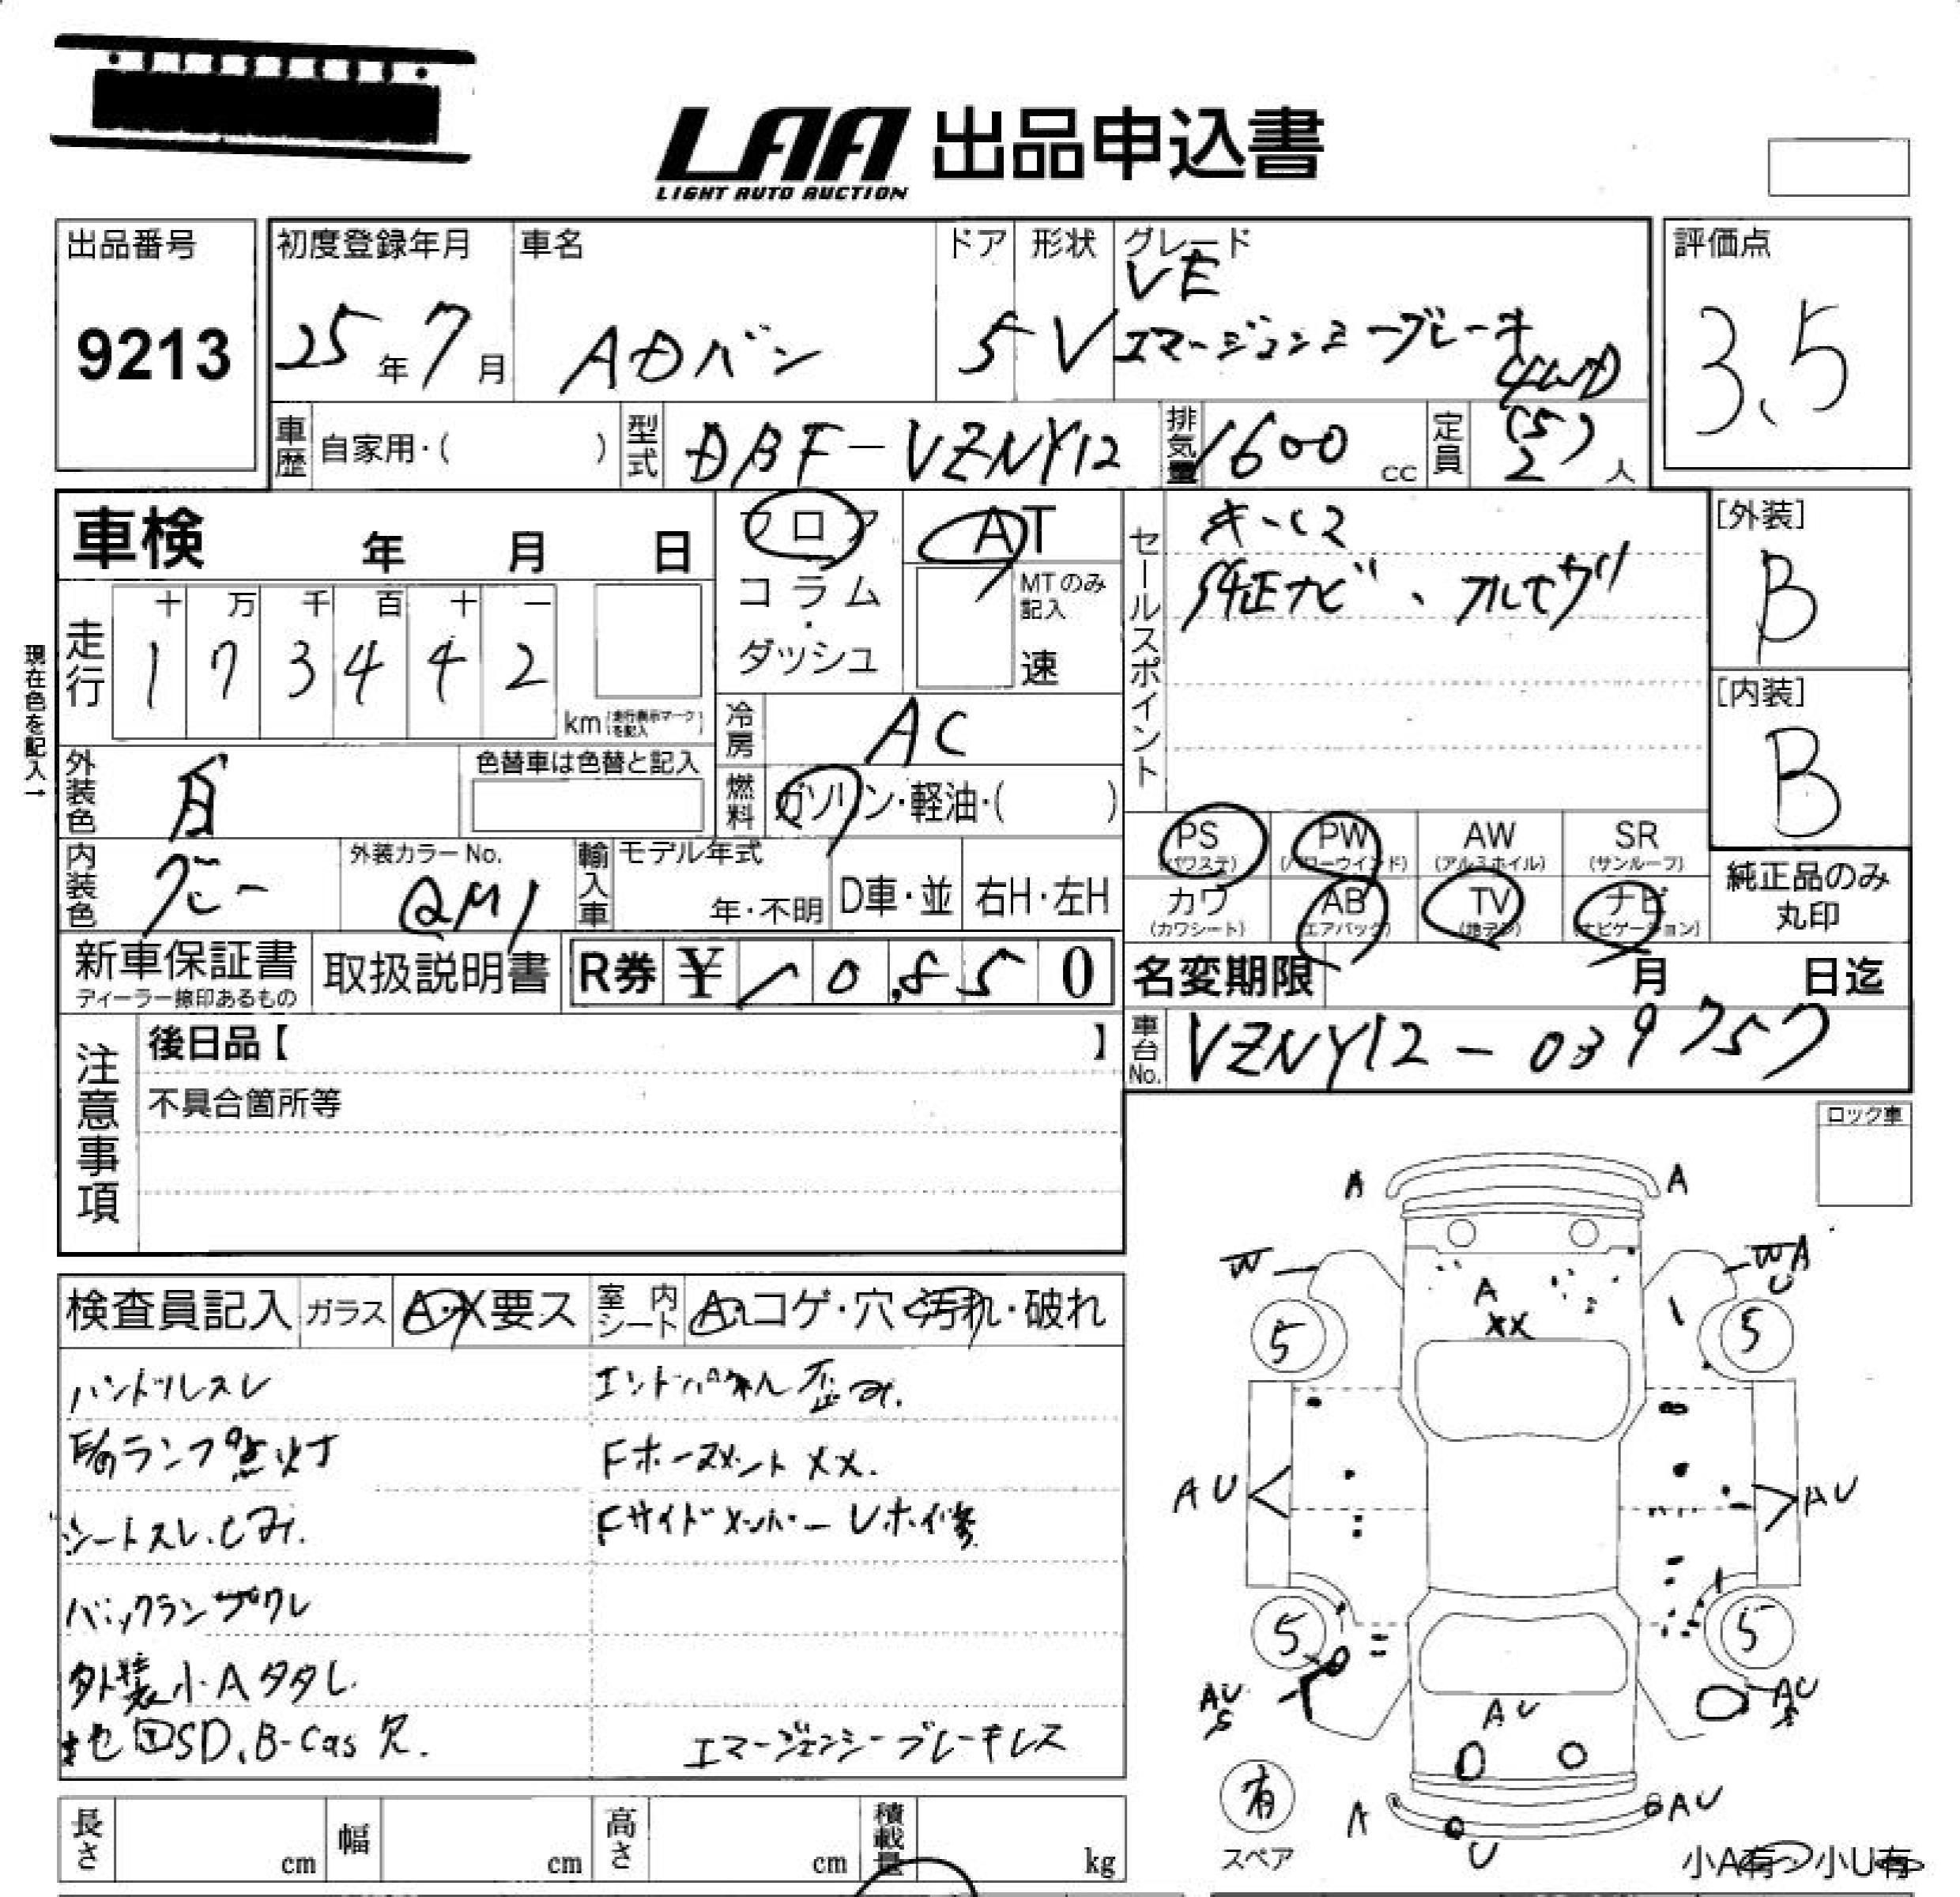 LAA 出品申込書
LIGHT AUTO AUCTION
出品番号
9213
初度登録年月
25年7月
車名
ADバン
ドア
5
形状
V
グレード
VE
エマージェンシーブレーキ
4WD
評価点
3.5
車歴 自家用・( )
型式 DBF-VZNY12
排気量 1600 cc
定員 (5) 2 人
車検 年 月 日
フロア
コラム・
ダッシュ
AT
MTのみ記入
速
走行
十 万 千 百 十 一
1 7 3 4 4 2
km (走行表示マークを記入)
現在色を記入→
外装色 白
色替車は色替と記入
内装色 グレー
外装カラーNo.
QM1
冷房 AC
燃料 ガソリン・軽油・( )
輸入車 モデル年式
年・不明
D車・並
右H・左H
セールスポイント
キーC2
純正ナビ、フルセグ
[外装]
B
[内装]
B
PS (パワステ)
PW (パワーウインド)
AW (アルミホイル)
SR (サンルーフ)
カワ (カワシート)
AB (エアバッグ)
TV (地デジ)
ナビ (ナビゲーション)
純正品のみ丸印
新車保証書
ディーラー捺印あるもの
取扱説明書
R券 ¥10,850
名変期限 月 日迄
車台No. VZNY12-039757
注意事項
後日品【 】
不具合箇所等
ロック車
検査員記入
ガラス A・X要ス
室内シート A・コゲ・穴・汚れ・破れ
ハンドルスレ
ランプ点灯
シートスレ.シミ.
バックランプワレ
外装小Aタタし
地図SD、B-Cas欠.
エンドパネル歪み.
FホースメントXX.
Fサイドメンバーレホイ修
エマージェンシーブレーキレス
A A
W W A U
A
XX
5 5
AU AU
5 5
AU S
AU S
AU
A AU
U
有
スペア
小A有 小U有
長さ cm
幅 cm
高さ cm
積載量 kg